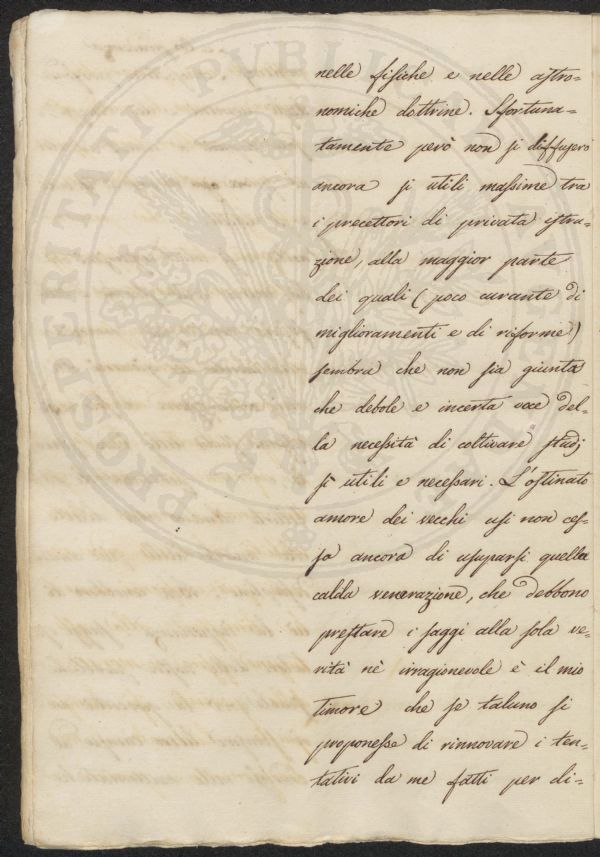 nelle fisiche e nelle astro=
nomiche dottrine. Sfortuna=
tamente però non si diffusero
ancora sì utili massime tra
i precettori di privata istru=
zione, alla maggior parte
dei quali (poco curante di
miglioramenti e di riforme)
sembra che non sia giunta
che debole e incerta voce del=
la necessità di coltivare studj
sì utili e necessari. L'ostinato
amore dei vecchi usi non ces=
sa ancora di usuparsi quella
calda venerazione, che debbono
prestare i saggi alla sola ve=
rità nè irragionevole è il mio
timore che se taluno si
proponesse di rinnovare i ten=
tativi da me fatti per di=
PROSPERITATI PUBLICAE